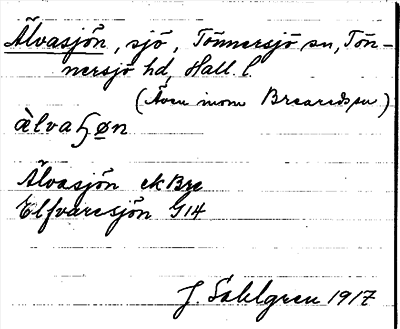 Älvasjön, sjö, Tönnersjö sn, Tön-
nersjö hd, Hall. l.
(Även inom Breareds sn)
älvaʃøn
Älvasjön ekBre
Elfvaresjön G14
J. Sahlgren 1917